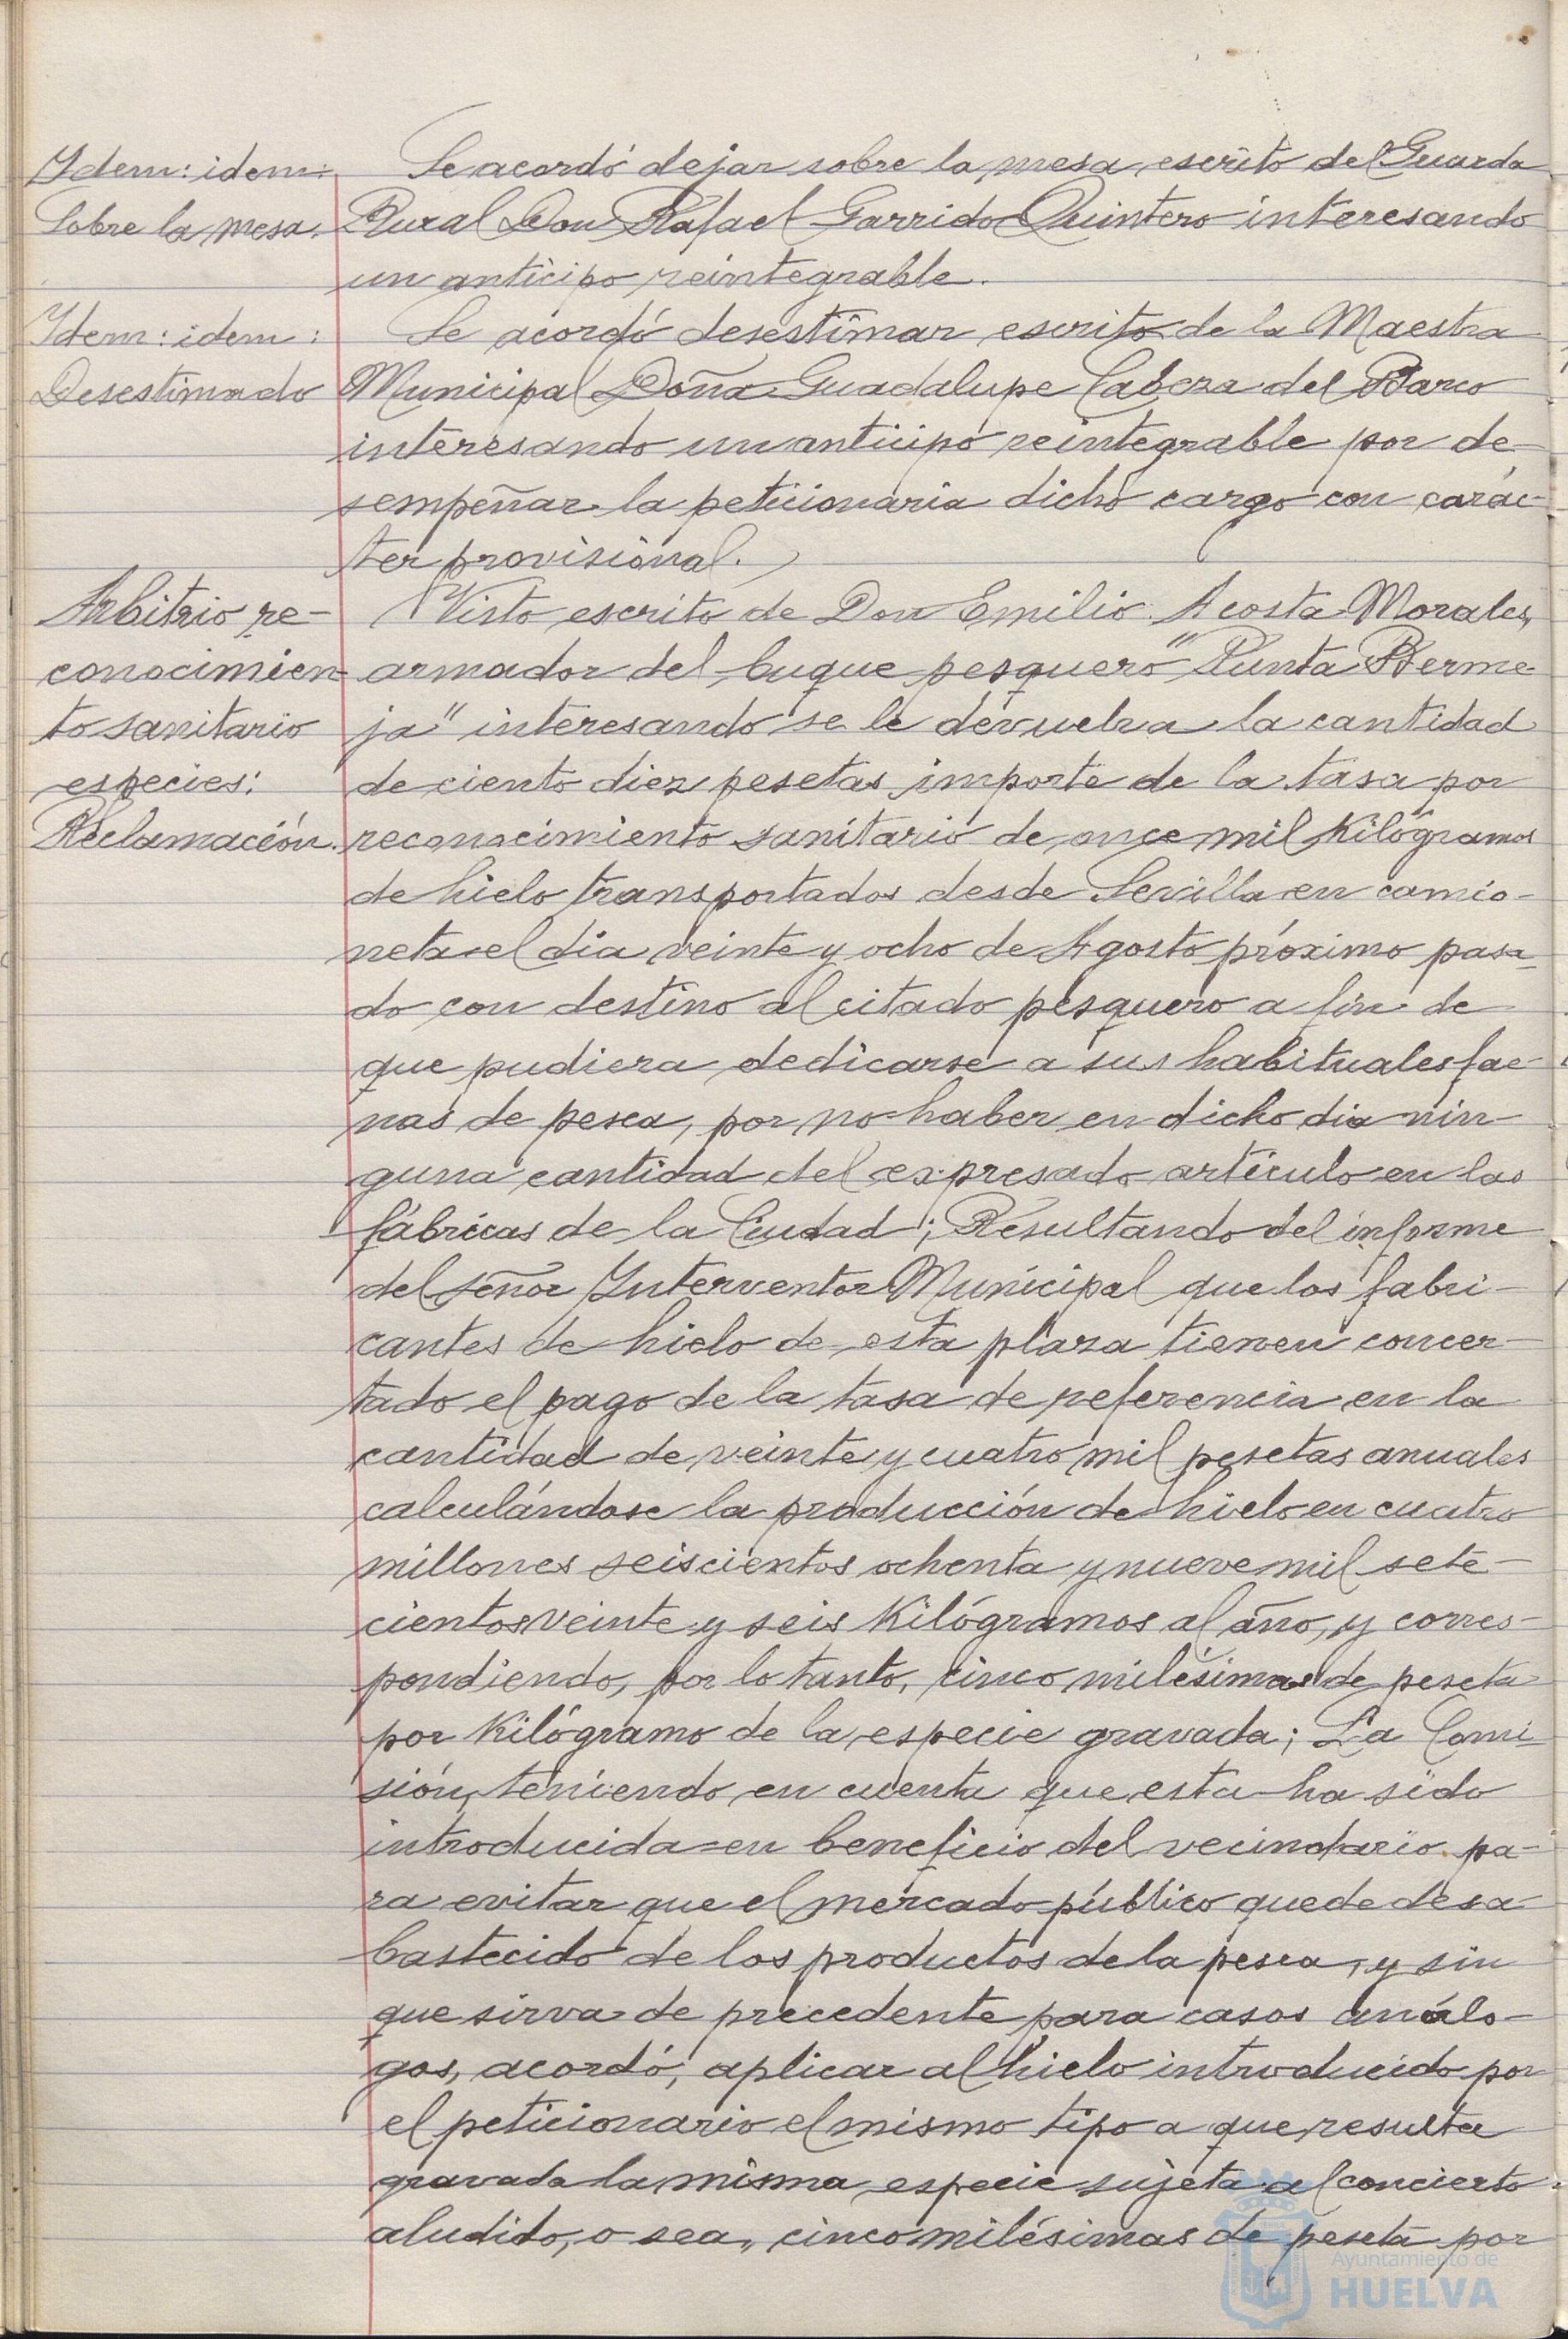 Ydem: idem:
Sobre la mesa.
Se acordó dejar sobre la mesa escrito del Guarda
Rural Don Rafael Garrido Quintero interesando
un anticipo reintegrable.
Ydem: idem:
Desestimado
Se acordó desestimar escrito de la Maestra
Municipal Doña Guadalupe Cabeza del Barco
interesando un anticipo reintegrable por de-
sempeñar la peticionaria dicho cargo con carác-
ter provisional.
Arbitrio re-
conocimien-
to sanitario
especies:
Reclamación.
Visto escrito de Don Emilio Acosta Morales,
armador del buque pesquero "Punta Berme-
ja" interesando se le devuelva la cantidad
de ciento diez pesetas importe de la tasa por
reconocimiento sanitario de once mil Kilógramos
de hielo transportados desde Sevilla en camio-
neta el dia veinte y ocho de Agosto próximo pasa-
do con destino al citado pesquero a fin de
que pudiera dedicarse a sus habituales fae-
nas de pesca, por no haber en dicho dia nin-
guna cantidad del expresado artículo en las
fábricas de la Ciudad; Resultando del informe
del señor Ynterventor Municipal que los fabri-
cantes de hielo de esta plaza tienen concer-
tado el pago de la tasa de referencia en la
cantidad de veinte y cuatro mil pesetas anuales
calculándose la producción de hielo en cuatro
millones seiscientos ochenta y nueve mil sete-
cientos veinte y seis Kilógramos al año, y corres-
pondiendo, por lo tanto, cinco milésimas de peseta
por Kilógramo de la especie gravada; La Comi-
sión, teniendo en cuenta que esta ha sido
introducida en beneficio del vecindario pa-
ra evitar que el mercado público quede desa-
bastecido de los productos de la pesca, y sin
que sirva de precedente para casos análo-
gos, acordó, aplicar al hielo introducido por
el peticionario el mismo tipo a que resulta
gravada la misma especie sujeta al concierto
aludido, o sea, cinco milésimas de peseta por
Ayuntamiento de
HUELVA